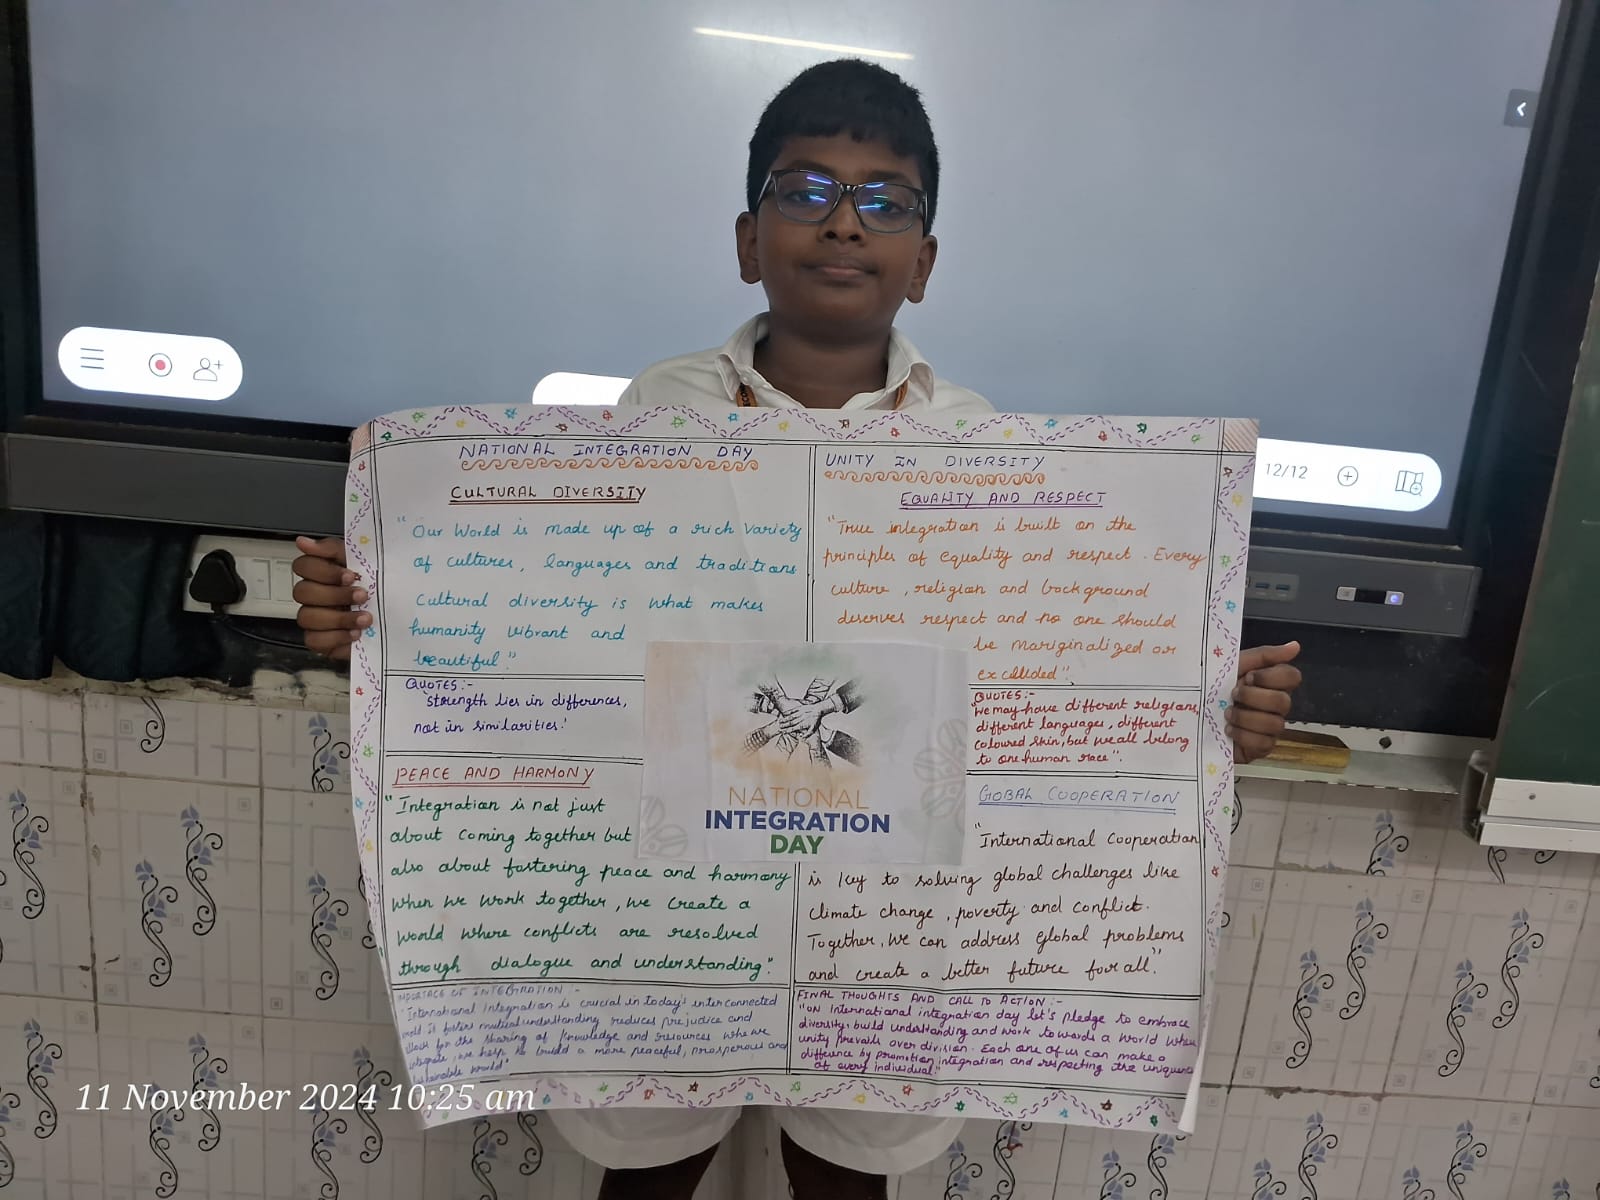 NATIONAL INTEGRATION DAY
CULTURAL DIVERSITY
"Our World is made up of a rich variety
of cultures, languages and traditions
Cultural diversity is what makes
humanity vibrant and
beautiful."
QUOTES:-
"Strength lies in differences,
not in similarities.'
PEACE AND HARMONY
"Integration is not just
about coming together but
also about fostering peace and harmony
when we work together, we create a
world where conflicts are resolved
through dialogue and understanding."
OF INTEGRATION :-
"International Integration is crucial in today's interconnected
world it fosters mutual understanding reduces prejudice and
for the sharing of knowledge and resources whe we
integrate, we help to build a more peaceful, prosperous and
world"
UNITY IN DIVERSITY
EQUALITY AND RESPECT
"True integration is built on the
principles of equality and respect. Every
culture, religion and background
deserves respect and no one should
be mariginalized or
excluded".
QUOTES:-
"We may have different religians,
different languages, different
coloured skin, but we all belong
to one human race".
GOBAL COOPERATION
"International Cooperation
is key to solving global challenges like
climate change, poverty and conflict.
Together, we can address global problems
and create a better future for all".
FINAL THOUGHTS AND CALL TO ACTION :-
"ON International integration day let's pledge to embrace
diversity, build understanding and work towards a world where
unity prevails over division. Each one of us can make a
difference by promotion integration and respecting the
of every individual."
NATIONAL
INTEGRATION
DAY
12/12
11 November 2024 10:25 am